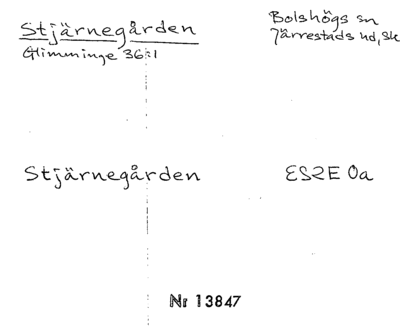 Stjärnegården
Glimminge 36:1
Bolshögs sn
Järrestads hd, Sk
Stjärnegården
ES2E 0a
Nr 13847